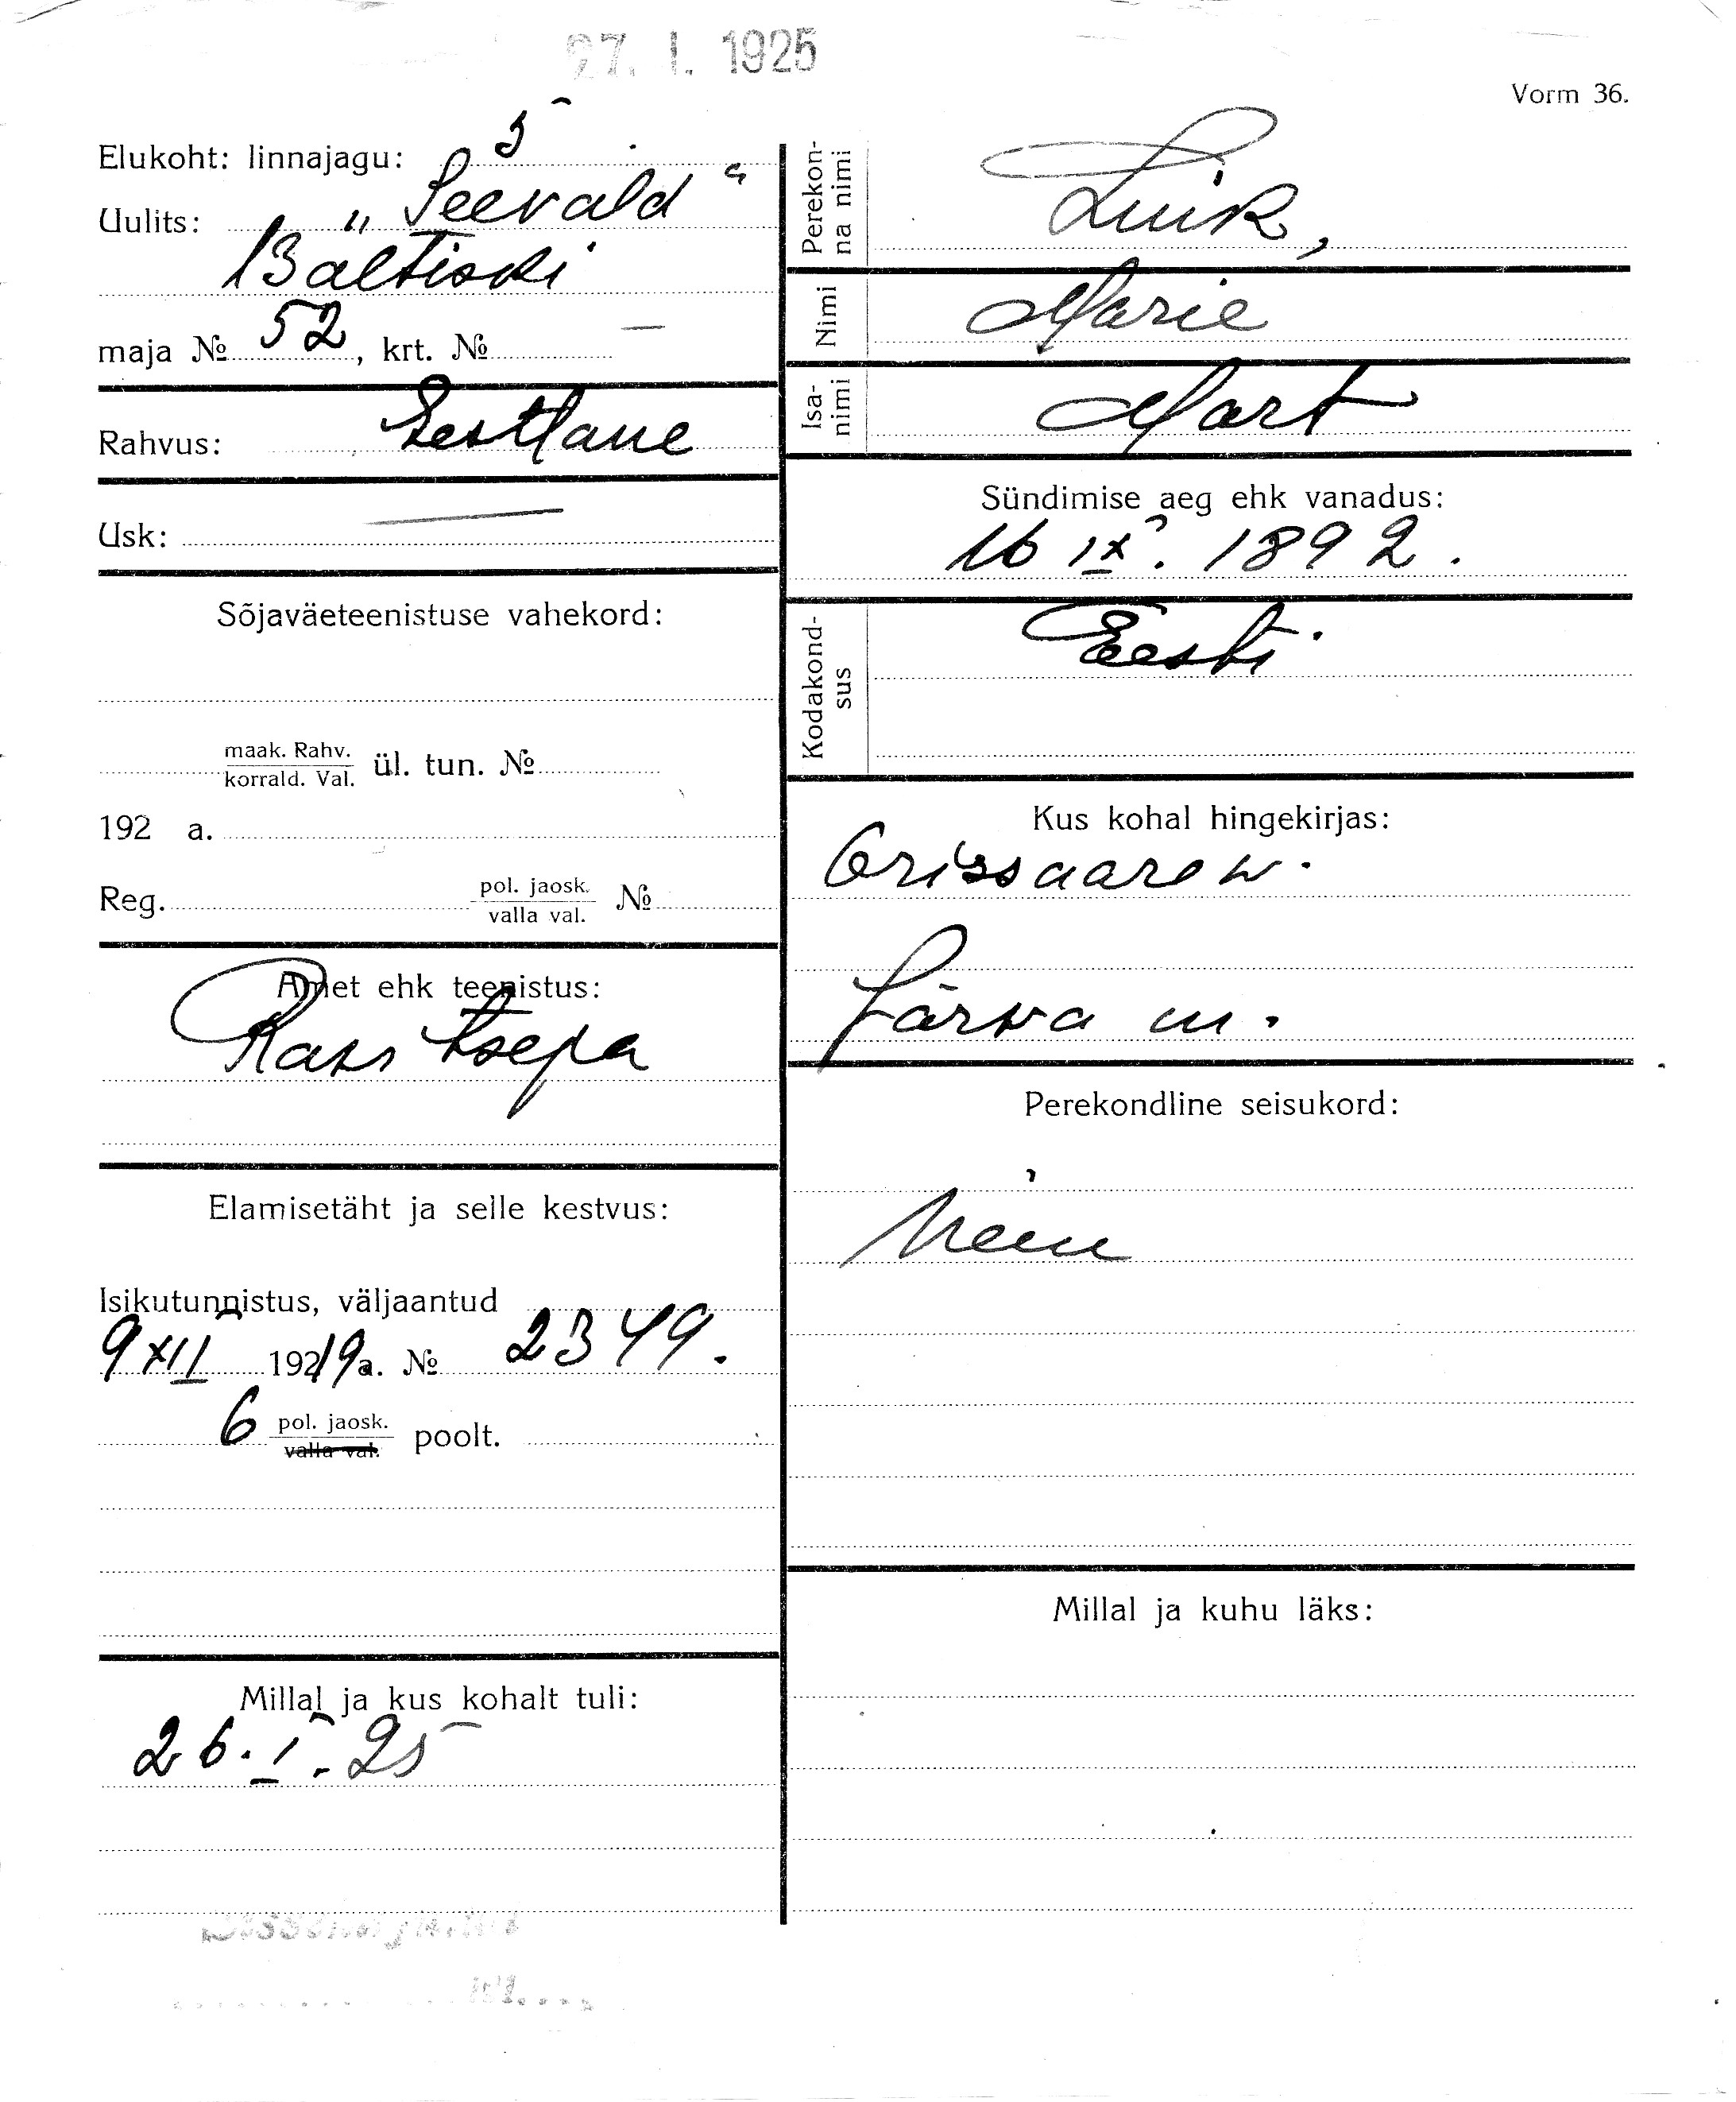 27. I. 1925
Vorm 36.
Elukoht: linnajagu: 5
Uulits: „Seevald“
Baltiski
maja № 52, krt. № —
Rahvus: Eestlane
Usk: —
Sõjaväeteenistuse vahekord:
maak. Rahv.
korrald. Val. ül. tun. №
192 a.
Reg. pol. jaosk.
valla val. №
Amet ehk teenistus:
Rätsepa
Elamisetäht ja selle kestvus:
Isikutunnistus, väljaantud
9 XII 19219a. № 2349.
6 pol. jaosk.
valla val. poolt.
Millal ja kus kohalt tuli:
26. I. 25
Perekon-
na nimi
Luik,
Nimi
Marie
Isa-
nimi
Mart
Sündimise aeg ehk vanadus:
16 IX. 1892.
Kodakond-
sus
Eesti
Kus kohal hingekirjas:
Orissaare w.
Järva m.
Perekondline seisukord:
Neiu
Millal ja kuhu läks: